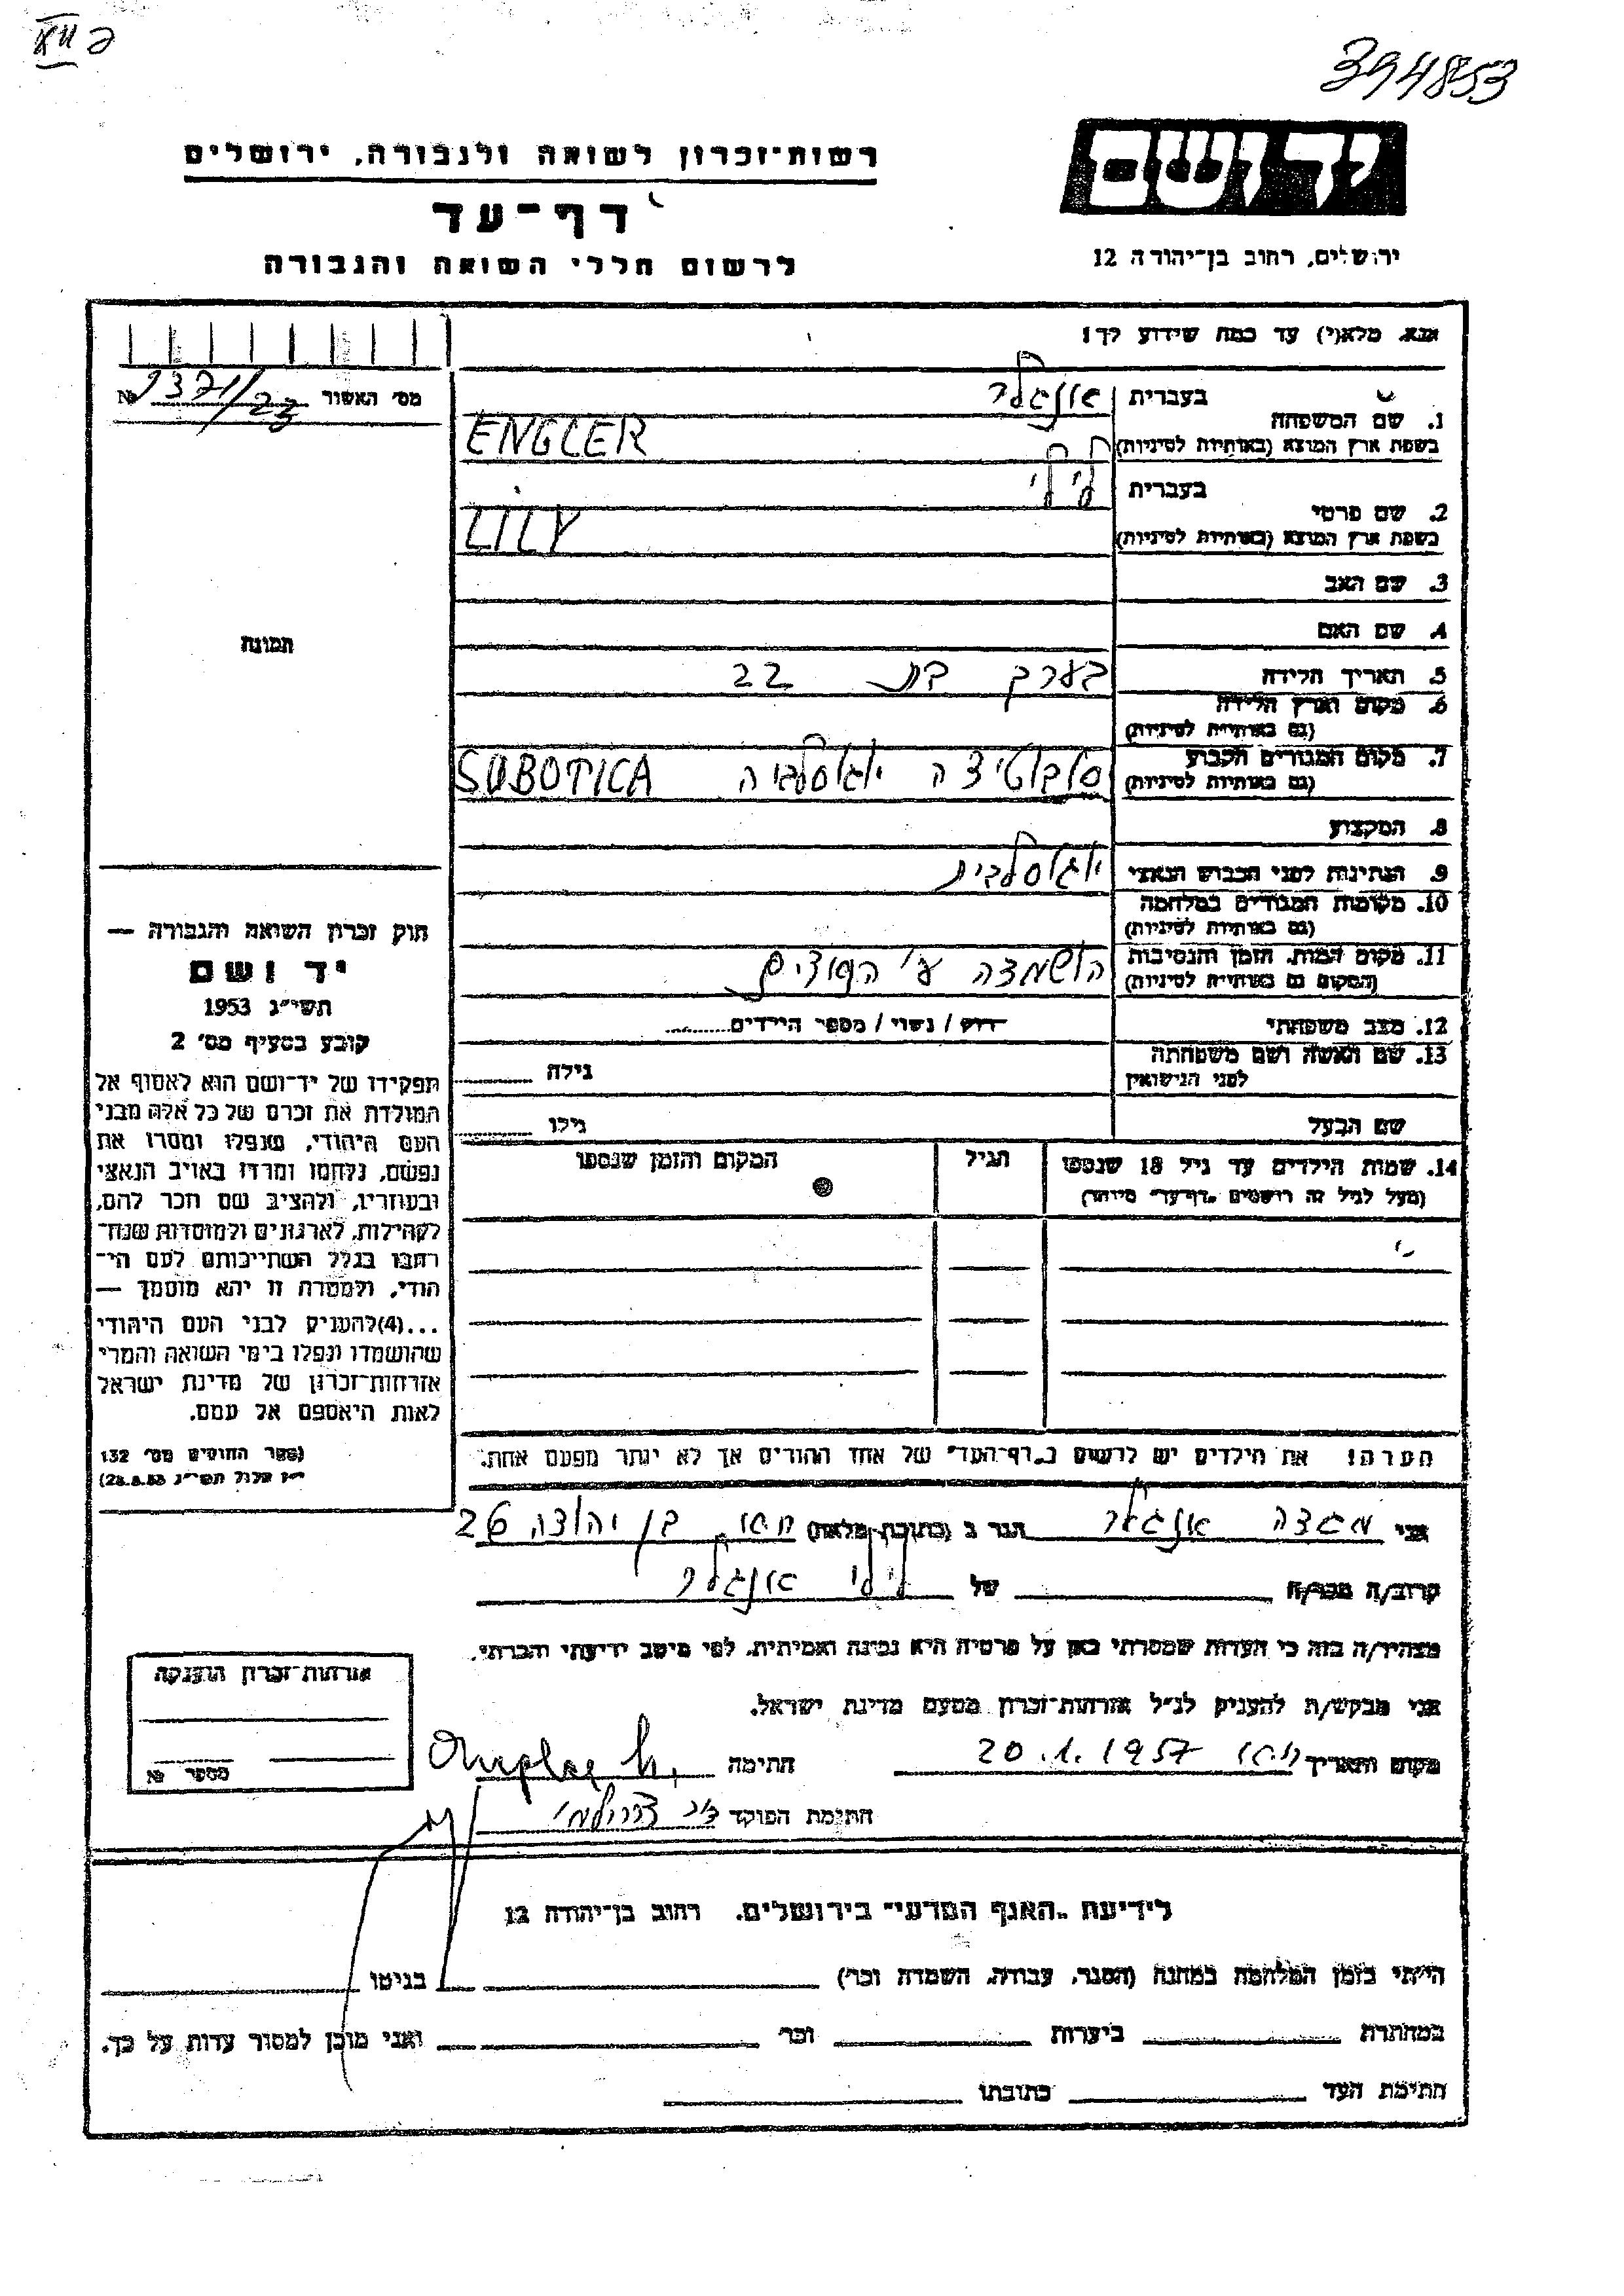 394853
רשות־זכרון לשואה ולגבורה, ירושלים
יד ושם
דף־עד
ירושלים, רחוב בן־יהודה 12
לרשום חללי השואה והגבורה
אנא, מלא(י) עד כמה שידוע לך!
מס׳ האשור № 9371/23
1. שם המשפחה
בעברית אונגלר
בשפת ארץ המוצא (באותיות לטיניות) ENGLER
2. שם פרטי
בעברית לילי
בשפת ארץ המוצא (באותיות לטיניות) LILY
3. שם האב
4. שם האם
תמונה
5. תאריך הלידה בערך בת 22
6. מקום וארץ הלידה
(גם באותיות לטיניות)
7. מקום המגורים הקבוע סובוטיצה יוגוסלביה SUBOTICA
(גם באותיות לטיניות)
8. המקצוע
9. הנתינות לפני הכבוש הנאצי יוגוסלבית
10. מקומות המגורים במלחמה
(גם באותיות לטיניות)
11. מקום המות, הזמן והנסיבות הושמדה ע״י הנאצים
(המקום גם באותיות לטיניות)
12. מצב משפחתי רווק / נשוי / מספר הילדים........
13. שם האשה ושם משפחתה
לפני הנישואין
גילה ........
שם הבעל גילו ........
14. שמות הילדים עד גיל 18 שנספו הגיל המקום והזמן שנספו
(מעל לגיל זה רושמים „דף־עד״ מיוחד)
חוק זכרון השואה והגבורה —
יד ושם
תשי״ג 1953
קובע בסעיף מס׳ 2
תפקידו של יד־ושם הוא לאסוף אל
המולדת את זכרם של כל אלה מבני
העם היהודי, שנפלו ומסרו את
נפשם, נלחמו ומרדו באויב הנאצי
ובעוזריו, ולהציב שם וזכר להם,
לקהילות, לארגונים ולמוסדות שנח־
רבו בגלל השתייכותם לעם הי־
הודי, ולמטרה זו יהא מוסמך —
...(4)להעניק לבני העם היהודי
שהושמדו ונפלו בימי השואה והמרי
אזרחות־זכרון של מדינת ישראל
לאות היאספם אל עמם.
(ספר החוקים מס׳ 132
י״ז אלול תשי״ג 28.8.53)
הערה! את הילדים יש לרשום ב„דף־העד״ של אחד ההורים אך לא יותר מפעם אחת.
אני מגדה אונגלר הגר ב (כתובת מלאה) חפה, בן יהודה 26
קרוב/ה מכר/ה של לילי אונגלר
מצהיר/ה בזה כי העדות שמסרתי כאן על פרטיה היא נכונה ואמיתית, לפי מיטב ידיעתי והכרתי.
אני מבקש/ת להעניק לנ״ל אזרחות־זכרון מטעם מדינת ישראל.
מקום ותאריך חפה 20.1.1957 חתימה
חתימת הפוקד
אזרחות־זכרון הוענקה
מספר №
לידיעת „האגף המדעי״ בירושלים, רחוב בן־יהודה 12
הייתי בזמן המלחמה במחנה (הסגר, עבודה, השמדה וכו׳) בגיטו
במחתרת ביערות וכו׳ ואני מוכן למסור עדות על כך.
חתימת העד כתובתו